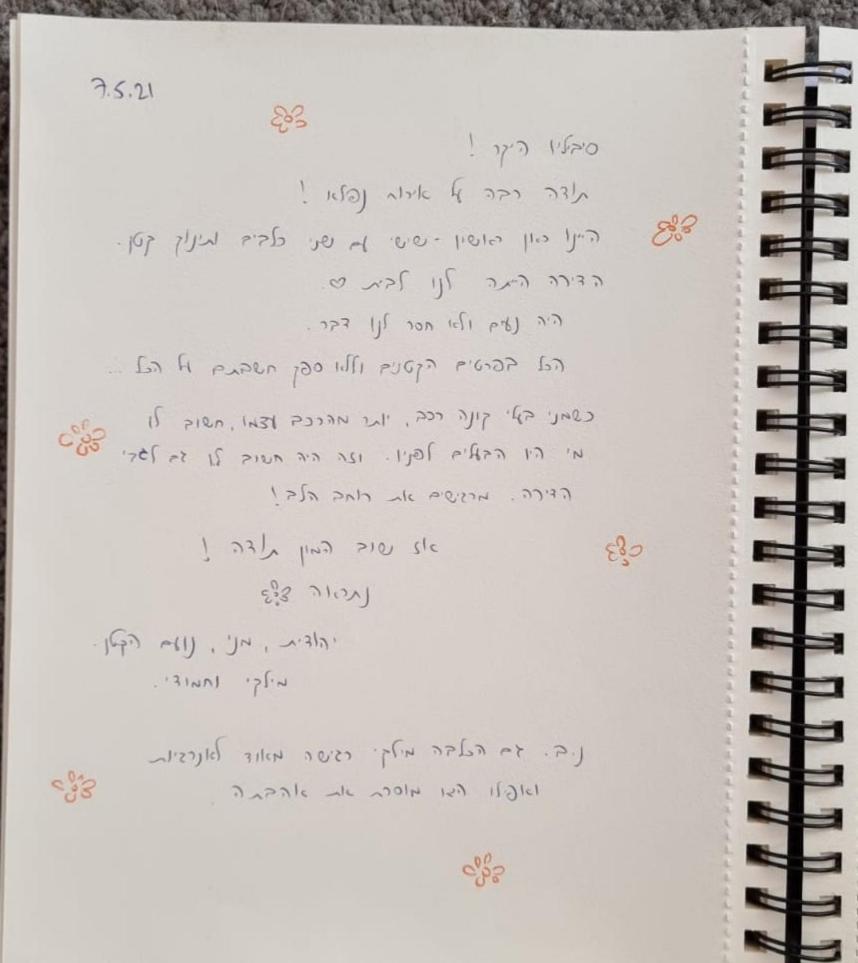 7.5.21
סיבליו היקר!
תודה רבה על אירוח נפלא!
היינו כאן ראשון-שישי עם שני כלבים ותינוק קטן.
הדירה הייתה לנו לבית ♡.
היה נעים ולא חסר לנו דבר.
הכל בפרטים הקטנים וללא ספק חשבתם על הכל...
כשמני בעלי קונה רכב, יותר מהרכב עצמו, חשוב לו
מי היו הבעלים לפניו. וזה היה חשוב לו גם לגבי
הדירה. מרגישים את רוחב הלב!
אז שוב המון תודה!
נתראה
יהודית, מני, נועם הקטן.
מילקי וחמודי.
נ.ב. גם הכלבה מילקי רגישה מאוד לאנרגיות
ואפילו היא מוסרת את אהבתה